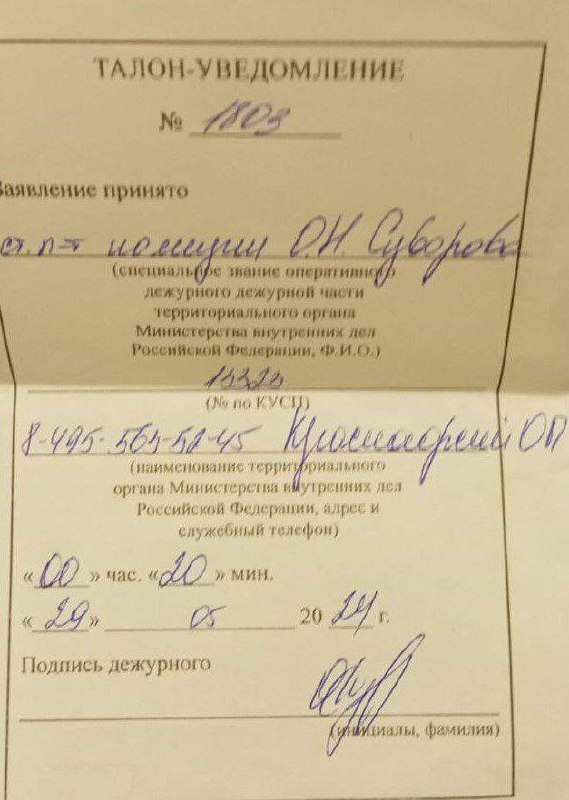 ТАЛОН-УВЕДОМЛЕНИЕ
№ 1803
Заявление принято
ст. л-т полиции О.Н. Суворова
(специальное звание оперативного
дежурного дежурной части
территориального органа
Министерства внутренних дел
Российской Федерации, Ф.И.О.)
(№ по КУСП)
Красногорский ОП
(наименование территориального
органа Министерства внутренних дел
Российской Федерации, адрес и
служебный телефон)
«00» час. «20» мин.
«29» 05 2024 г.
Подпись дежурного
(инициалы, фамилия)